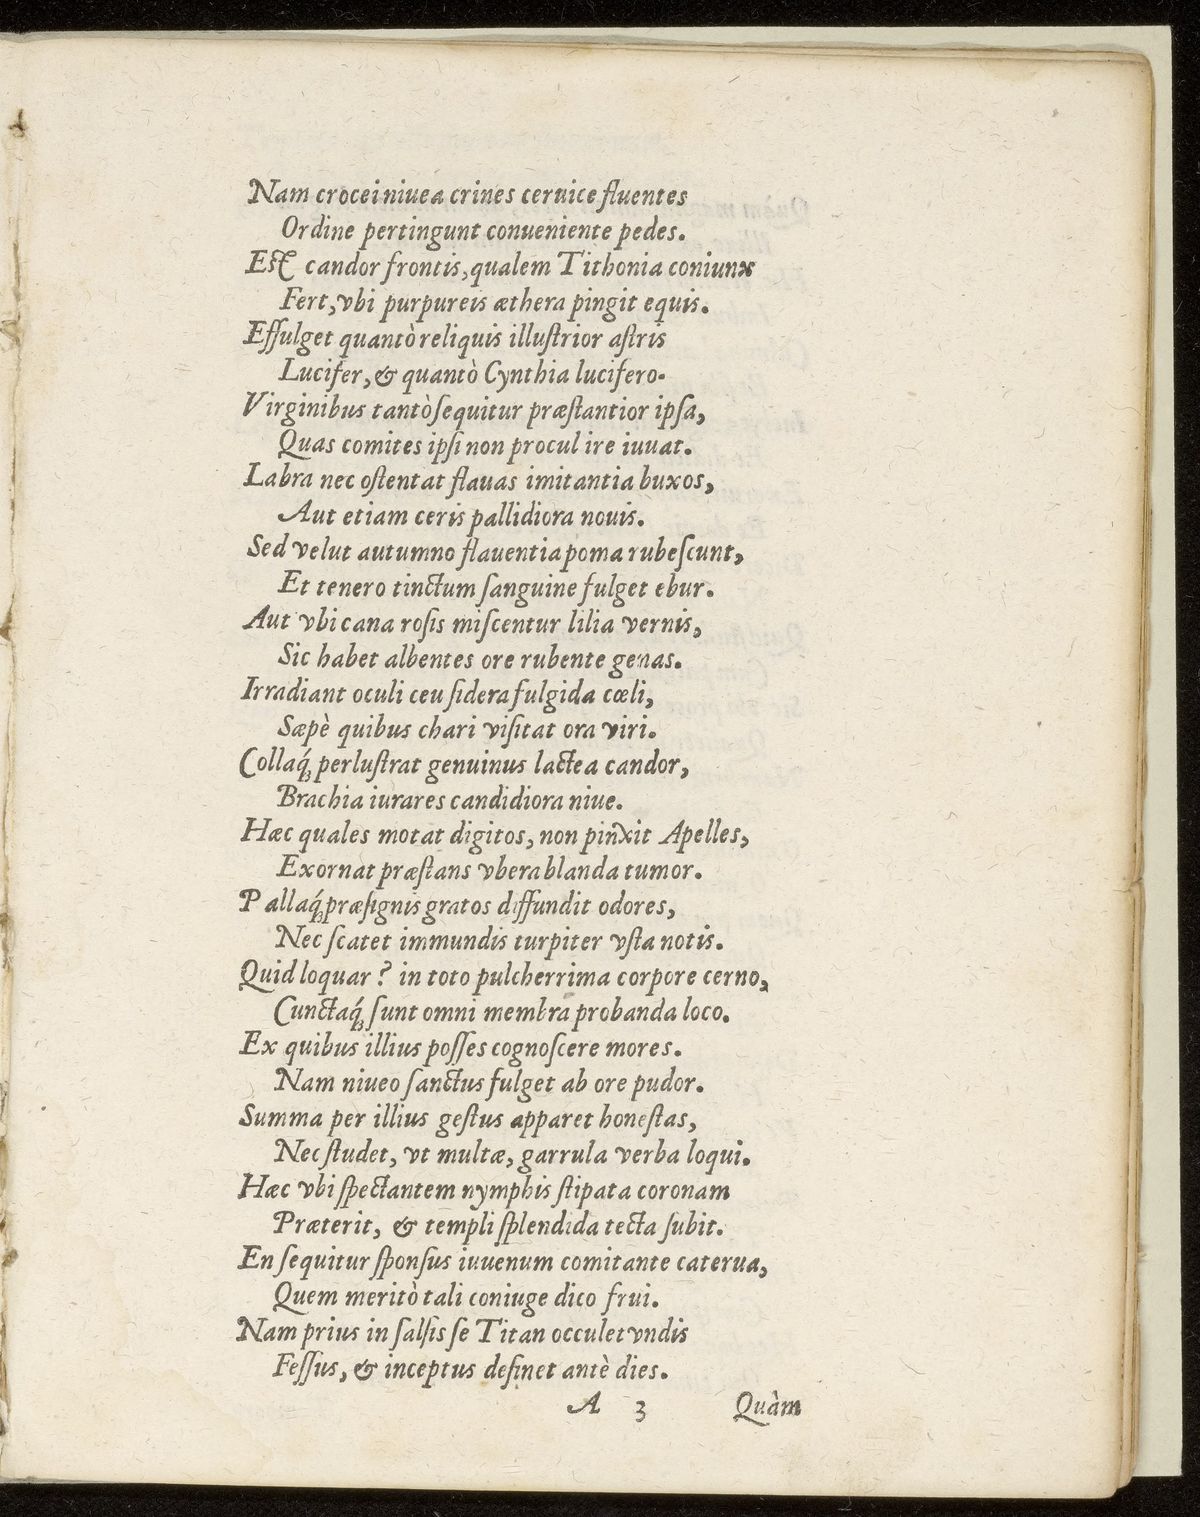 Nam crocei niuea crines ceruice fluentes
Ordine pertingunt conueniente pedes.
Est candor frontis, qualem Tithonia coniunx
Fert, vbi purpureis æthera pingit equis.
Effulget quantò reliquis illuſtrior aſtris
Lucifer, & quantò Cynthia lucifero.
Virginibus tantò ſequitur præſtantior ipſa,
Quas comites ipſi non procul ire iuuat.
Labra nec oſtentat flauas imitantia buxos,
Aut etiam ceris pallidiora nouis.
Sed velut autumno flauentia poma rubeſcunt,
Et tenero tinctum ſanguine fulget ebur.
Aut vbi cana roſis miſcentur lilia vernis,
Sic habet albentes ore rubente genas.
Irradiant oculi ceu ſidera fulgida cœli,
Sæpè quibus chari viſitat ora viri.
Collaq́; perluſtrat genuinus lactea candor,
Brachia iurares candidiora niue.
Hæc quales motat digitos, non pinxit Apelles,
Exornat præſtans vbera blanda tumor.
Pallaq́; præſignis gratos diffundit odores,
Nec ſcatet immundis turpiter vſta notis.
Quid loquar? in toto pulcherrima corpore cerno,
Cunctaq́; ſunt omni membra probanda loco.
Ex quibus illius poſſes cognoſcere mores.
Nam niueo ſanctus fulget ab ore pudor.
Summa per illius geſtus apparet honeſtas,
Nec ſtudet, vt multæ, garrula verba loqui.
Hæc vbi ſpectantem nymphis ſtipata coronam
Præterit, & templi ſplendida tecta ſubit.
En ſequitur ſponſus iuuenum comitante caterua,
Quem meritò tali coniuge dico frui.
Nam prius in ſalſis ſe Titan occulet vndis
Feſſus, & inceptus deſinet antè dies.
A 3 Quàm